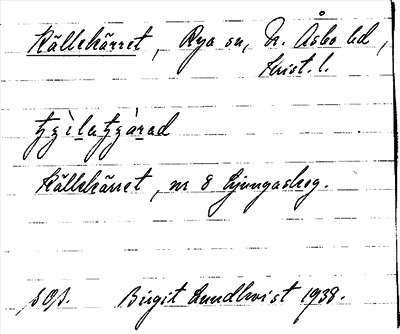 Källekärret, Rya sn, N. Åsbo hd,
Krist. l.
Källekärret, nr 8 Ljungaskog.
Birgit Lundkvist 1938.